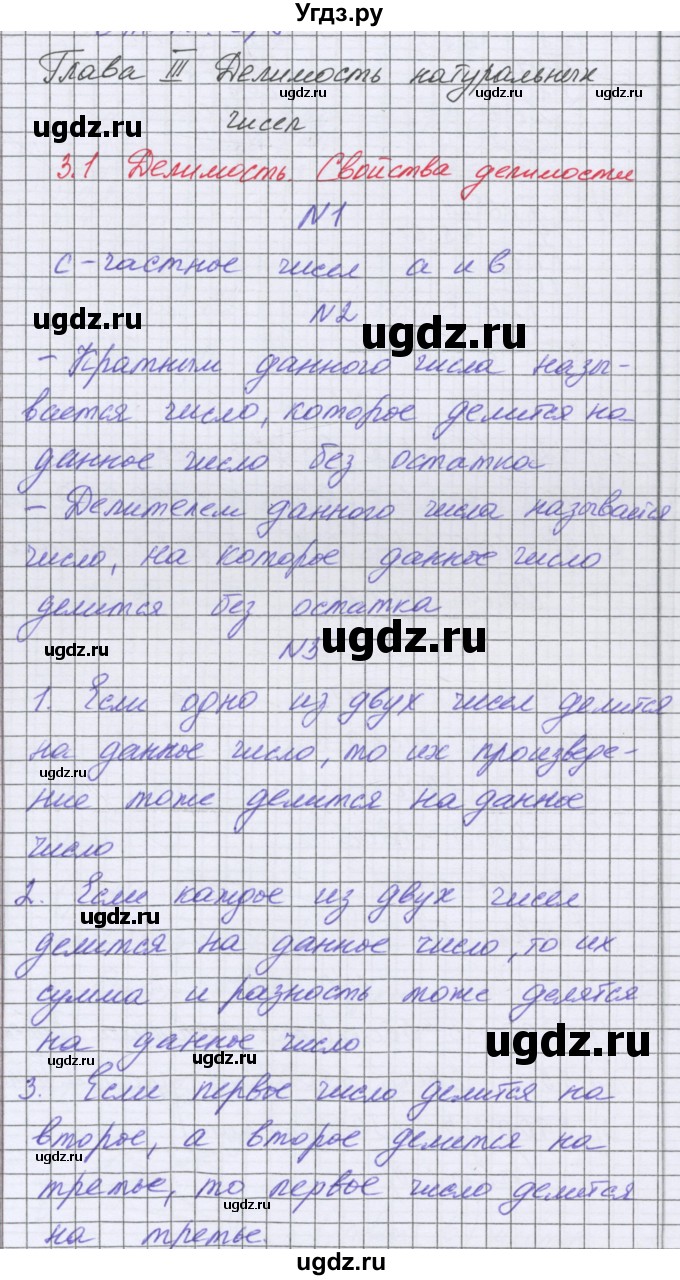 Угдз.ру
Глава III Делимость натуральных
ugdz.ru ugdz.ru
ugdz.ru
чисел
3.1 Делимость. Свойства делимости
ugdz.ru ugdz.ru
N1
c - частное чисел а и в
ugdz.ru
N2
ugdz.ru
- Кратным данного числа назы-
вается число, которое делится на
данное число без остатка
- Делителем данного числа называется
число, на которое данное число
делится без остатка
ugdz.ru
ugdz.ru
N3
1. Если одно из двух чисел делится
на данное число, то их произведе-
ugdz.ru
ние тоже делится на данное
число
2. Если каждое из двух чисел
ugdz.ru
делится на данное число, то их
сумма и разность тоже делятся
на данное число
ugdz.ru
ugdz.ru ugdz.ru
3. Если первое число делится на
второе, а второе делится на
ugdz.ru
третье, то первое число делится
ugdz.ru
на третье.
ugdz.ru ugdz.ru